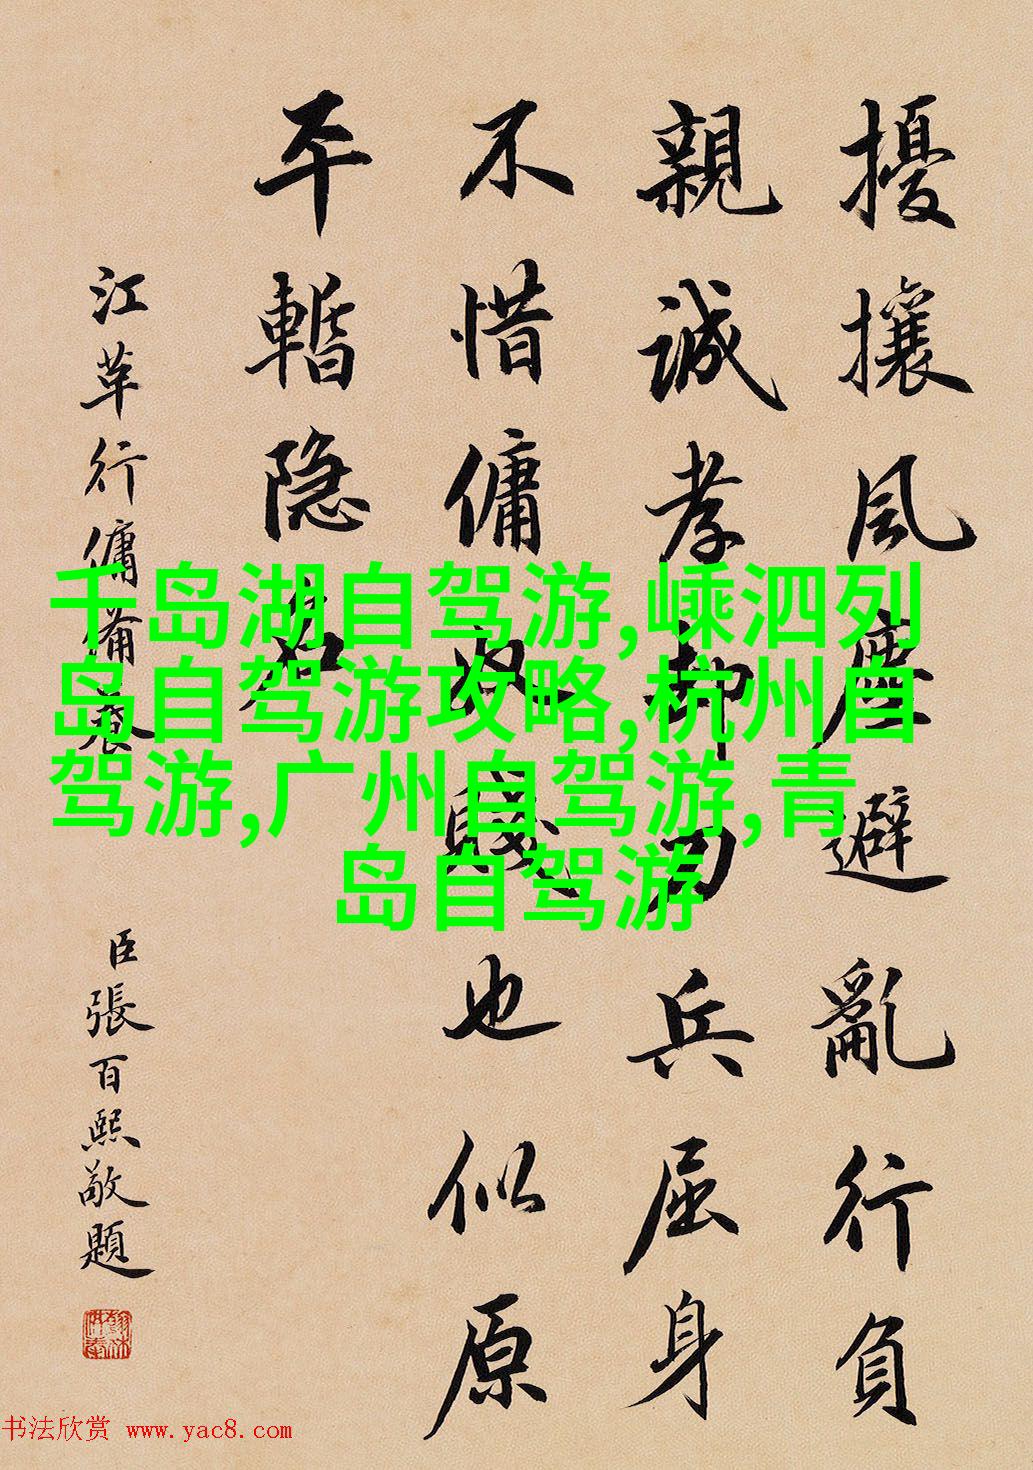 擾攘風塵避亂行負
親誠孝却兵屈身
不惜傭奴賤也似原
平暫隐名
江革行傭備養
臣張百熙敬題
千岛湖自驾游,嵊泗列
岛自驾游攻略,杭州自
驾游,广州自驾游,青
岛自驾游
书法欣赏 www.yac8.com